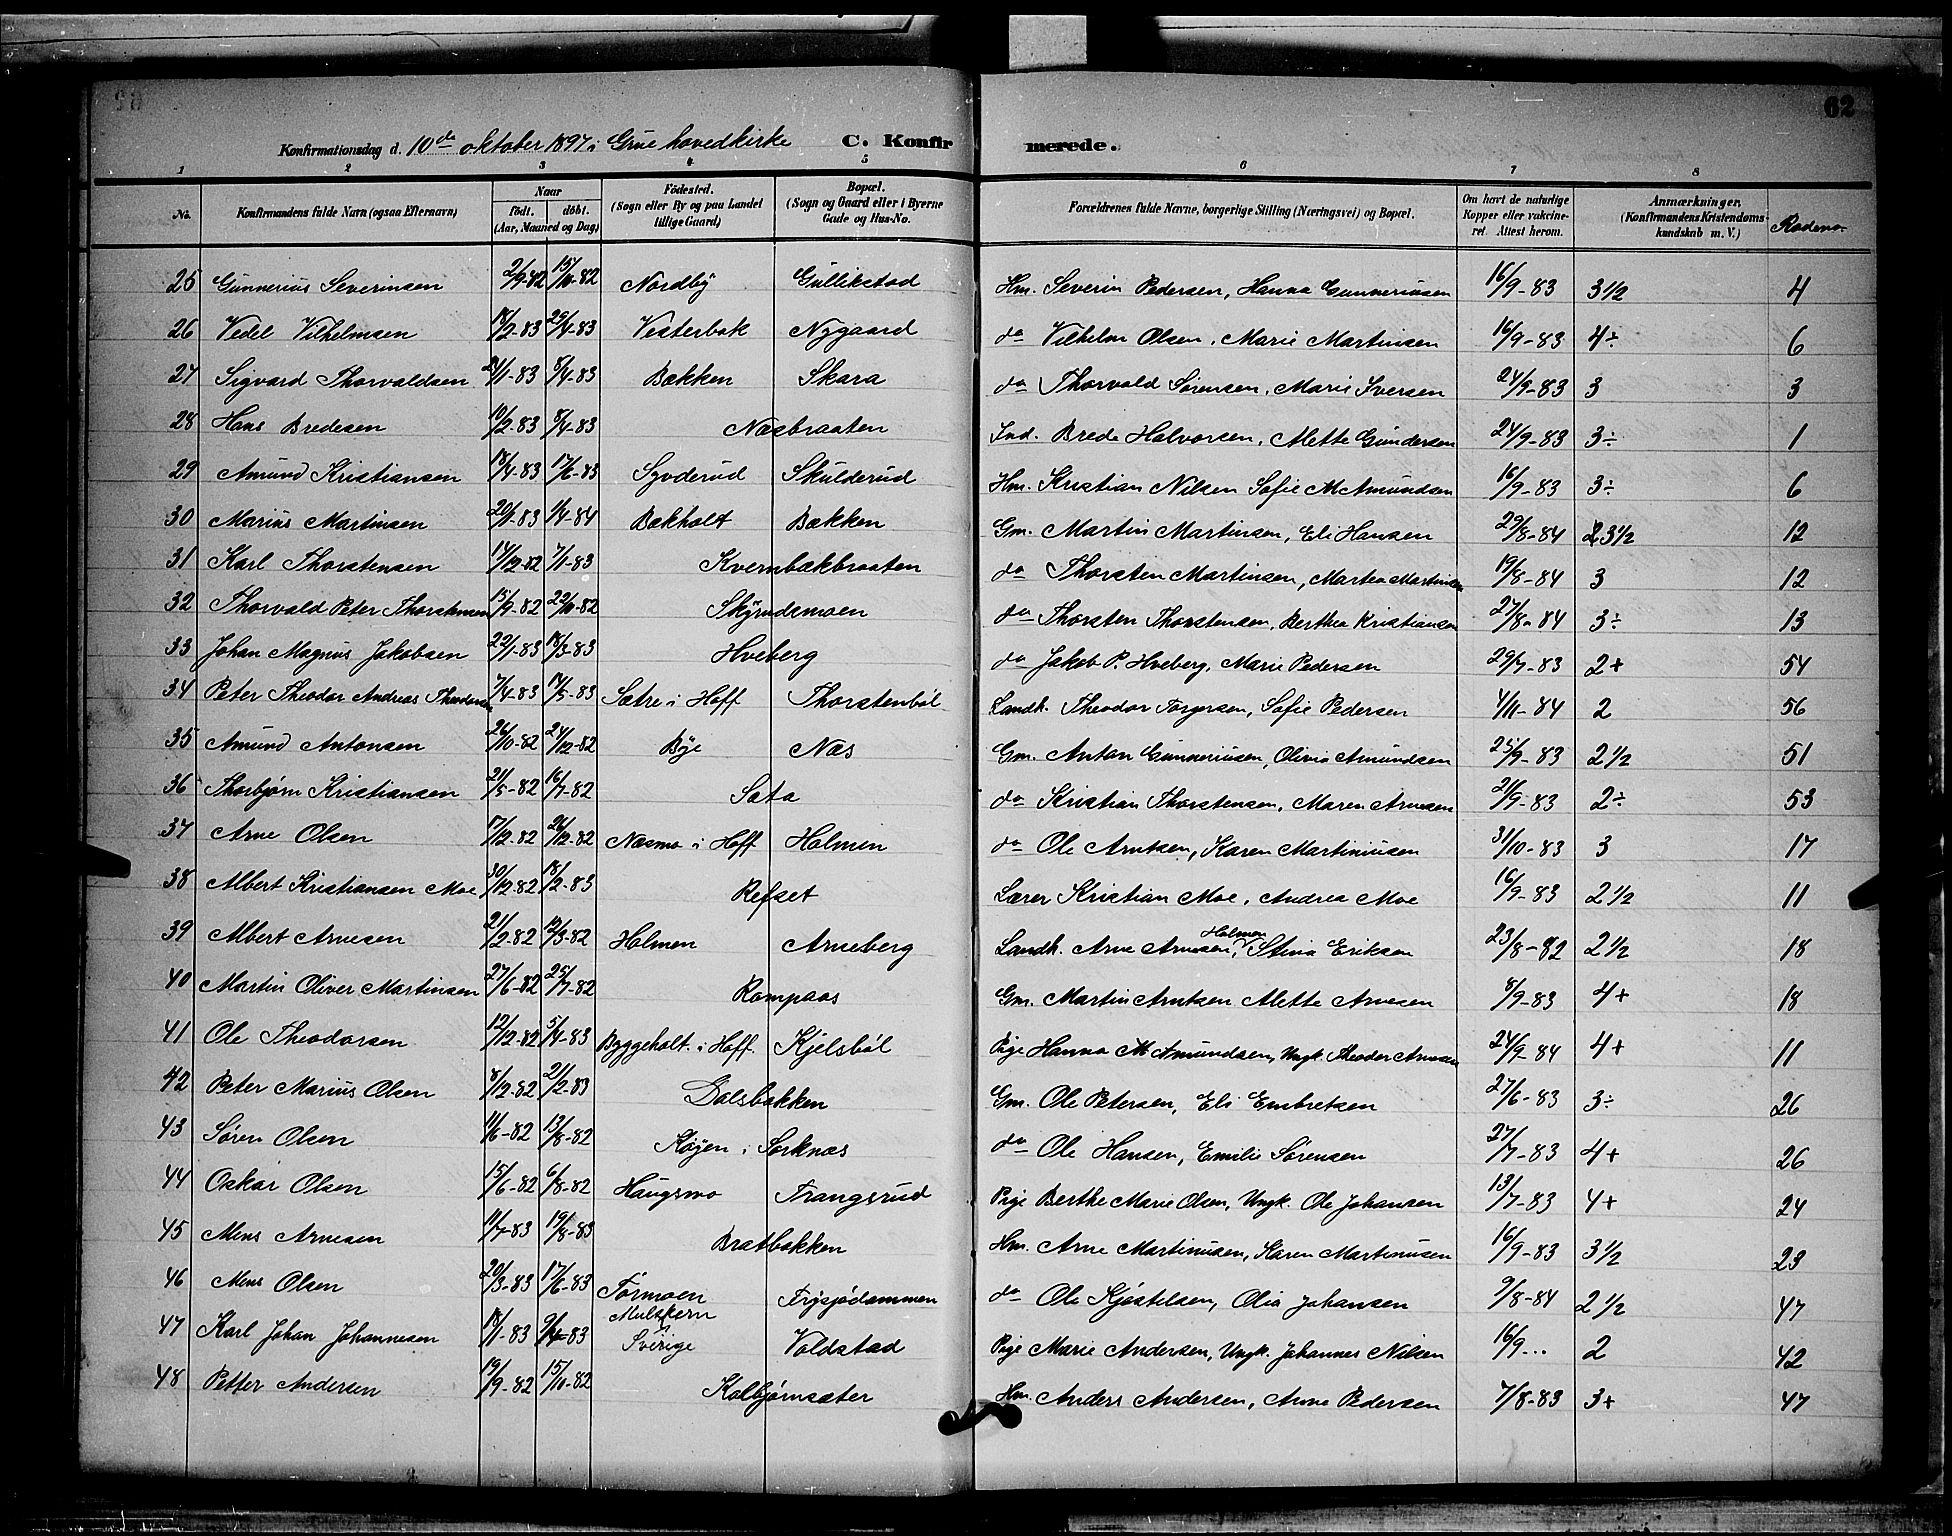 62
Konfirmationsdag d. 10de oktober 1897 i Grue hovedkirke C. Konfirmerede.
1 2 3 4 5 6 7 8
No. Konfirmandens fulde Navn (ogsaa Efternavn) Naar født. døbt. (Aar, Maaned og Dag) Fødested. (Sogn eller By og paa Landet tillige Gaard) Bopæl. (Sogn og Gaard eller i Byerne Gade og Hus-No. Forældrenes fulde Navne, borgerlige Stilling (Næringsvei) og Bopæl. Om havt de naturlige Kopper eller vakcineret. Attest herom. Anmærkninger. (Konfirmandens Kristendomskundskab m. V.) Rodeno.
25 Gunnerius Severinsen 2/9-82 15/10-82 Nordby Gullikstad Hm. Severin Pedersen, Hanna Gunneriusen 16/9-83 3 1/2 4
26 Vedel Vilhelmsen 18/2-83 29/4-83 Vesterbak Nygaard do Vilhelm Olsen, Marie Martinsen 16/9-83 4÷ 6
27 Sigvard Thorvaldsen 21/1-83 8/4-83 Bakken Skara do Thorvald Sørensen, Maris Iversen 24/9-83 3 3
28 Hans Bredesen 10/2-83 8/4-83 Næsbraaten Ind. Brede Halvorsen, Alette Gundersen 24/9-83 3÷ 1
29 Amund Kristiansen 18/4-83 17/6-83 Syvderud Skulderud Hm. Kristian Nilsen Sofie M Amundsen 16/9-83 3÷ 6
30 Marius Martinsen 20/11-83 1/4-84 Bækholt Bækken Gm. Martin Martinsen, Eli Hansen 29/8-84 3 1/2 12
31 Karl Thorstensen 14/12-82 7/1-83 Kvernbækbraaten do Thorsten Martinsen, Martea Martinsen 19/8-84 3 12
32 Thorvald Peter Thorstensen 15/9-82 22/10-82 Skyrudsmoen do Thorsten Thorstensen, Berthea Kristiansen 27/8-84 3÷ 13
33 Johan Magnus Jakobsen 22/1-83 18/3-83 Hveberg do Jakob P. Hveberg, Marie Pedersen 29/7-83 2+ 54
34 Peter Theodor Andreas Theodorsen 7/4-83 14/5-83 Sætre i Hoff Thorstenbøl Landh. Theodor Torgersen, Sofie Pedersen 4/11-84 2 56
35 Amund Antonsen 26/10-82 24/12-82 Bye Næs Gm. Anton Gunneriusen, Olivia Amundsen 25/9-83 2 1/2 51
36 Thorbjørn Kristiansen 21/5-82 16/7-82 Sata do Kristian Thorstensen, Maren Arnesen 21/9-83 2÷ 53
37 Arne Olsen 17/12-82 26/12-82 Næsmo i Hoff Holmen do Ole Arntsen, Karen Martiniusen 31/10-83 3 17
38 Albert Kristiansen Moe 30/12-82 18/2-83 Refset Lærer Kristian Moe, Andrea Moe 16/9-83 2 1/2 11
39 Albert Arnesen 21/2-82 12/3-82 Holmen Arneberg Landh. Arne Arnesen Holmen, Stina Eriksen 23/8-82 2 1/2 18
40 Martin Oliver Martinsen 27/6-82 25/7-82 Rompaas Gm. Martin Arntsen Alette Arnesen 8/9-83 4+ 18
41 Ole Theodorsen 12/12-82 5/4-83 Byggeholt i Hoff. Kjelsbøl Pige Hanna M Amundsen, Ungk. Theodor Arnesen 24/9-84 4+ 11
42 Peter Marius Olsen 8/12-82 21/2-83 Dalsbakken Gm. Ole Petersen, Eli Embretsen 27/6-83 3÷ 26
43 Søren Olsen 11/6-82 13/8-82 Køyen i Sorknæs do Ole Hansen, Emilie Sørensen 27/7-83 4+ 26
44 Oskar Olsen 15/6-82 6/8-82 Haugsmo Frangsrud Pige Berthe Marie Olsen, Ungk. Ole Johansen 13/7-83 4+ 24
45 Mens Arnesen 11/7-83 19/8-83 Bratbakken Hm. Arne Martinusen, Karen Martinusen 16/9-83 3 1/2 23
46 Mens Olsen 20/3-83 17/6-83 Tørmoen Frysjødammen do Ole Kjøstelsen, Olia Johansen 9/8-84 2 1/2 47
47 Karl Johan Johannesen 18/1-83 9/4-83 Mulskern Sverige Voldstad Pige Marie Andersen, Ungk. Johannes Nilsen 16/9... 2 42
48 Petter Andersen 19/9-82 15/10-82 Kolbjørnsæter Hm. Anders Andersen, Anne Pedersen 7/8-83 3+ 47